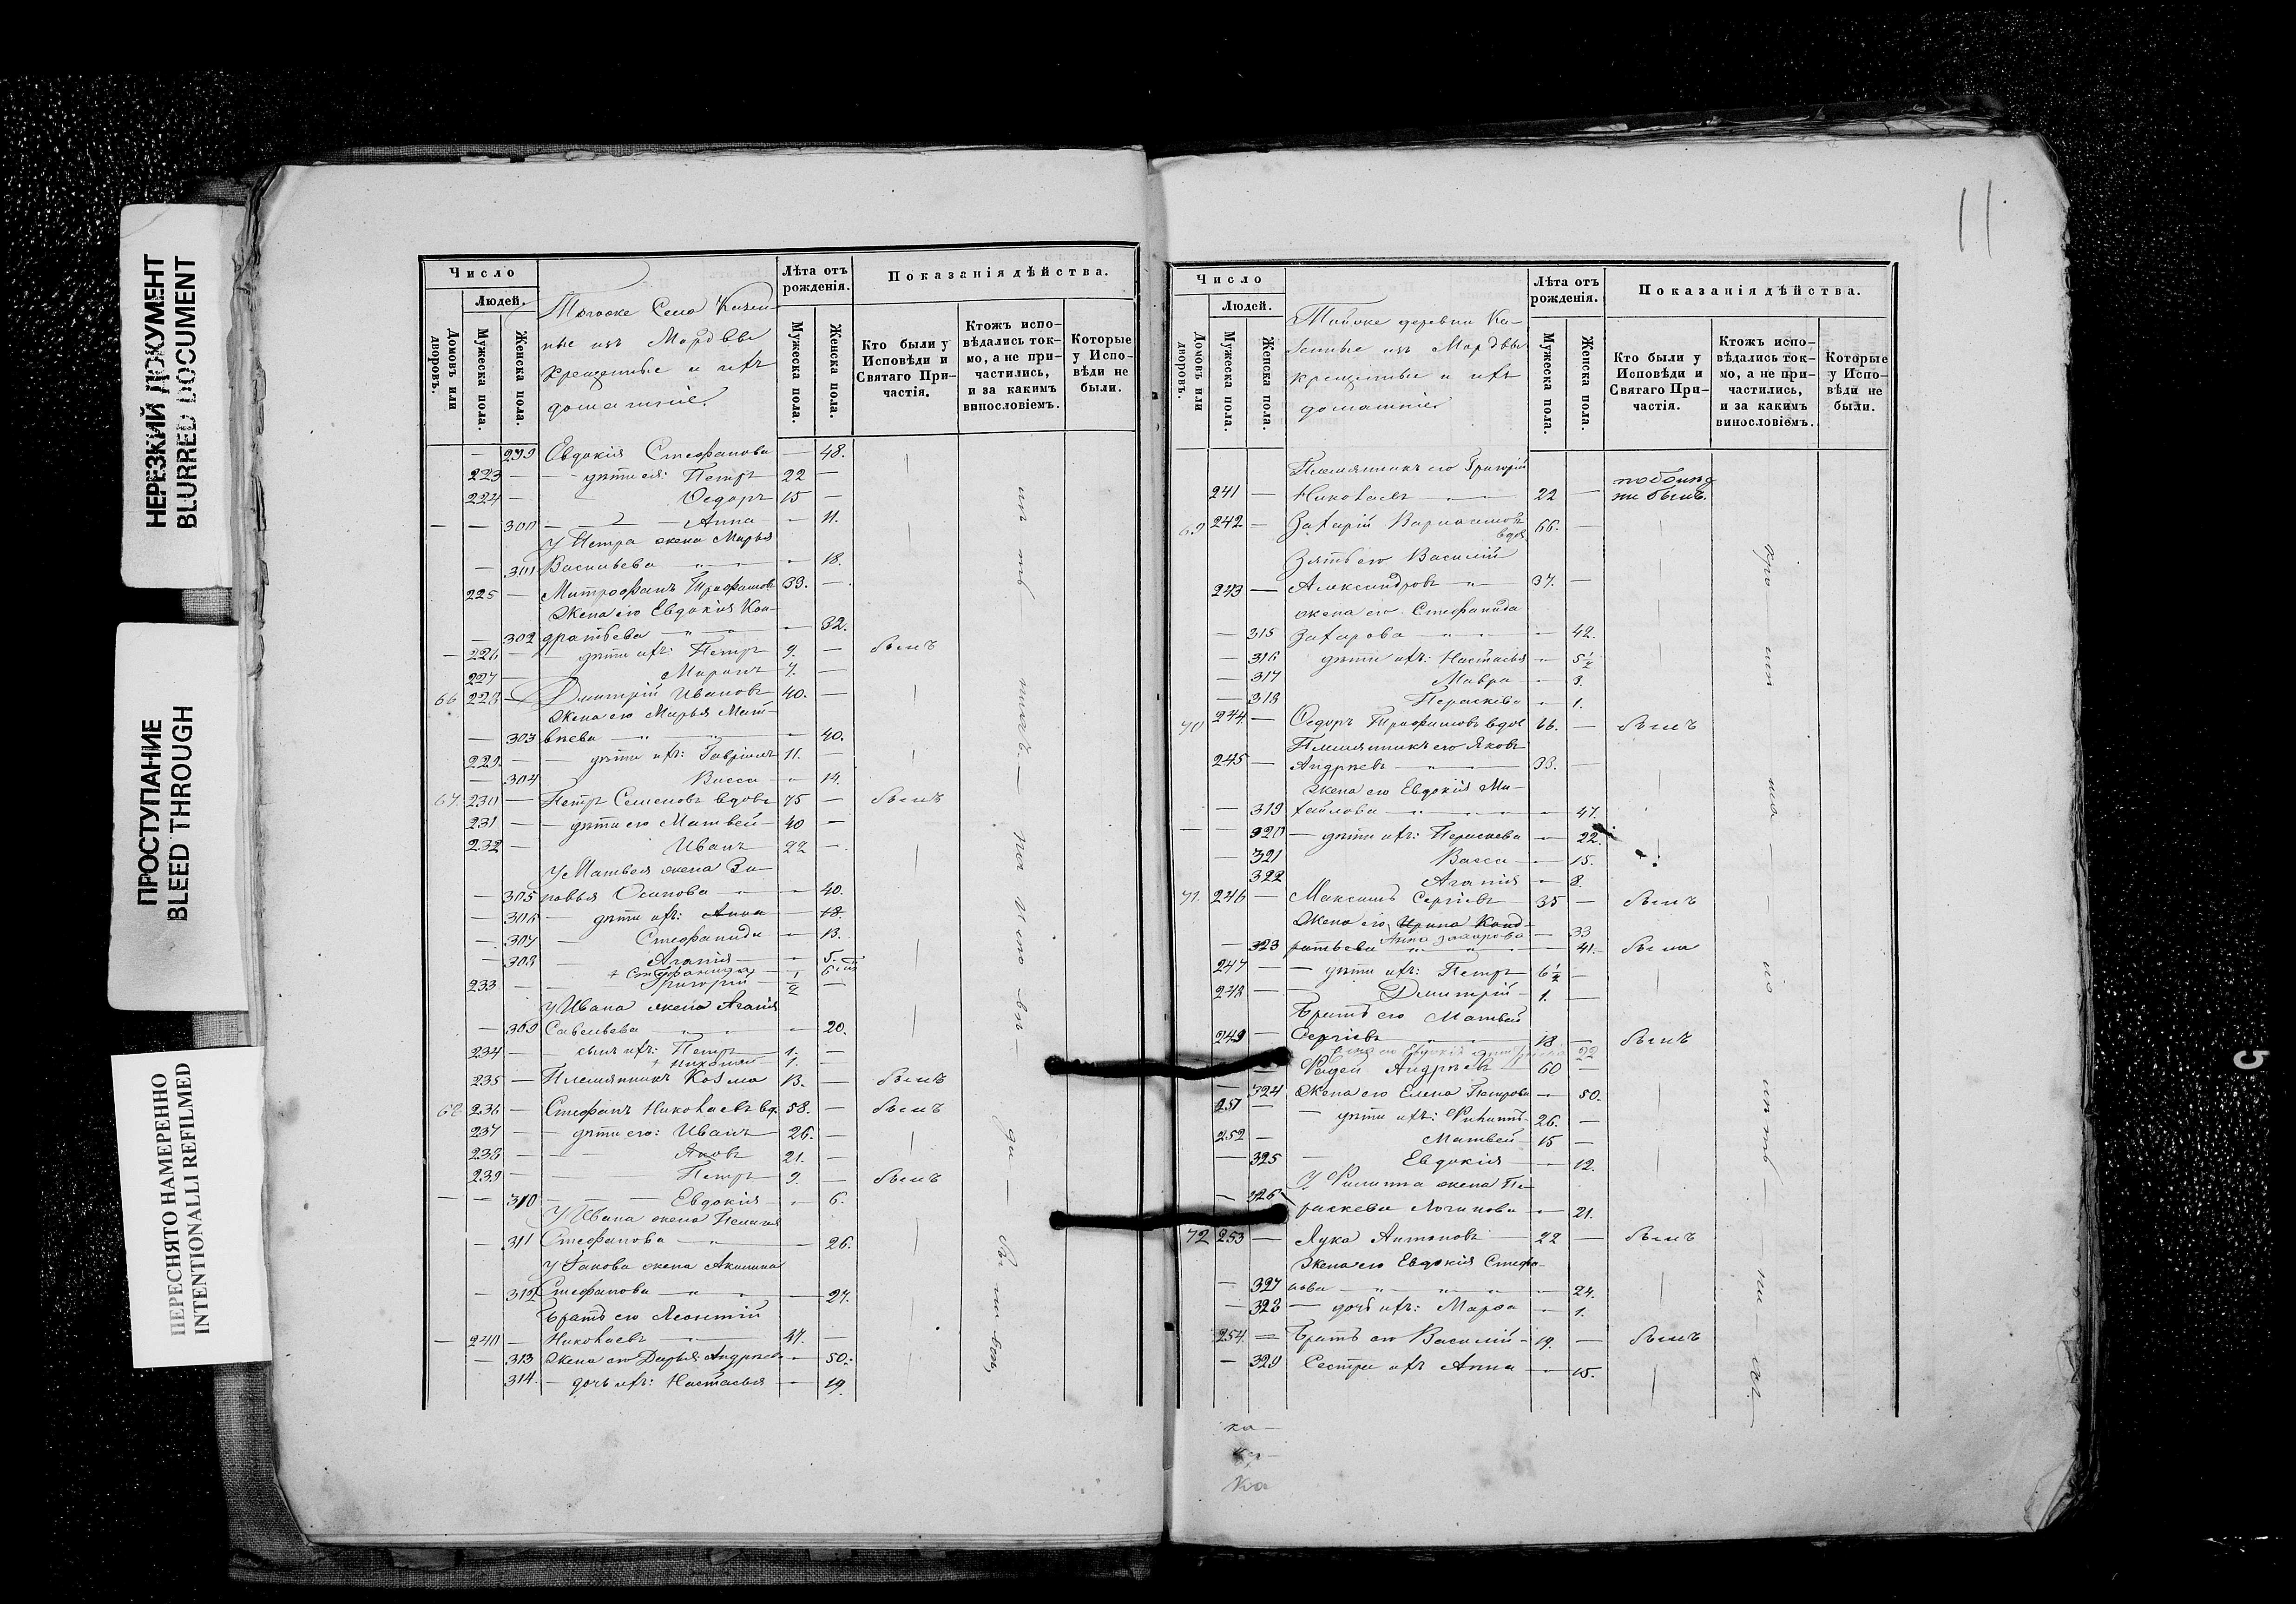 НЕРЕЗКИЙ ДОКУМЕНТ
BLURRED DOCUMENT
ПРОСТУПАНИЕ
BLEED THROUGH
ПЕРЕСНЯТО НАМЕРЕННО
INTENTIONALLI REFILMED
Число
Людей.
Домовъ или дворовъ.
Мужеска пола.
Женска пола.
Тогоже Села Казен-
ные изъ Мордвы
крещенные и ихъ
домашніе.
Лѣта отъ рожденія.
Мужеска пола.
Женска пола.
Показанія дѣйства.
Кто были у Исповѣди и Святаго Причастія.
Ктожъ исповѣдались токмо, а не причастились, и за какимъ винословіемъ.
Которые у Исповѣди не были.
— 299 Евдокія Стефанова — 48.
223 — дѣти ея: Петръ 22 —
224 — Ѳедоръ 15 —
— — 300 — Анна — 11.
У Петра жена Марья
— 301 Васильева — 18.
225 — Митрофанъ Трофимовъ 33. —
Жена его Евдокія Кон-
— 302 дратьева — 32.
— 226 — дѣти ихъ: Петръ 9. — былъ
227 — Миронъ 7. —
66 228 — Дмитрій Ивановъ 40. —
Жена его Марья Мат-
— 303 вѣева — 40.
229. — дѣти ихъ: Гавріилъ 11. —
— 304 Васса — 14.
67. 230 — Петръ Семеновъ вдовъ 75 — былъ
231 — дѣти его Матвей 40 —
232 — Иванъ 22 —
У Матвея жена Зи-
— 305 новья Осипова — 40.
— 306 — дѣти ихъ: Анна — 18.
— 307 — Стефанида — 13.
— 308 — Агапія — 5.
233 — Григорій ½ —
У Ивана жена Агапія
— 309 Савельева — 20.
234 — сынъ ихъ: Петръ 1. —
235 — Племянникъ Козма 13. — былъ
68 236 — Стефанъ Николаевъ вд. 58. — былъ
237 — дѣти его: Иванъ 26. —
238 — Яковъ 21. —
239 — Петръ 9. — былъ
— — 310 — Евдокія — 6.
У Ивана жена Пелагія
— 311 Стефанова — 26.
У Іакова жена Акилина
— 312 Стефанова — 27.
Братъ его Леонтій
— 240 — Николаевъ 47. —
— 313 Жена его Дарья Андрѣева — 50.
314. — дочь ихъ: Настасья — 19.
11
Число
Людей.
Домовъ или дворовъ.
Мужеска пола.
Женска пола.
Тойже деревни Ка-
зенные изъ Мордвы
крещенные и ихъ
домашніе
Лѣта отъ рожденія.
Мужеска пола.
Женска пола.
Показанія дѣйства.
Кто были у Исповѣди и Святаго Причастія.
Ктожъ исповѣдались токмо, а не причастились, и за какимъ винословіемъ.
Которые у Исповѣди не были.
Племянникъ его Григорій
241 — Николаевъ 22 —
не былъ.
69 242 — Захарій Варламовъ 66. —
вдов
Зять его Василій
243 — Александровъ 37. —
жена его Стефанида
— 315 Захарова — 42.
— 316 дѣти ихъ: Настасья — 5½
— 317 Мавра — 3.
— 318 Параскева — 1.
70 244. — Ѳедоръ Трофимовъ вдов 66. — былъ
Племянникъ его Яковъ
245 — Андрѣевъ 33. —
Жена его Евдокія Ми-
— 319 хайлова — 47.
— — 320 — дѣти ихъ: Параскева — 22.
— 321 Васса — 15.
322 Агапія — 8.
71. 246 — Максимъ Сергіевъ 35 — былъ
Жена его Ирина Конд- — 33
— 323 ратьева Анна Захарова — 41. была
247 — дѣти ихъ: Петръ 6½ —
248 — Дмитрій 1. —
Братъ его Матвей
249 — Сергіевъ 18 — былъ
Андрѣевъ 60 —
— 324 Жена его Елена Петрова — 50.
251 — дѣти ихъ: 26. —
252 — Матвей 15 —
— 325 Евдокія — 12.
У Филиппа жена Па-
— 326 раскева Логинова — 21.
72 253 — Лука Антоновъ 22 — былъ
Жена его Евдокія Стефа-
— 327 нова — 24.
— 328 — дочь ихъ: Марѳа — 1.
254. — Братъ его Василій 19. — былъ
— 329 Сестра ихъ Анна — 15.
ка —
ка
5